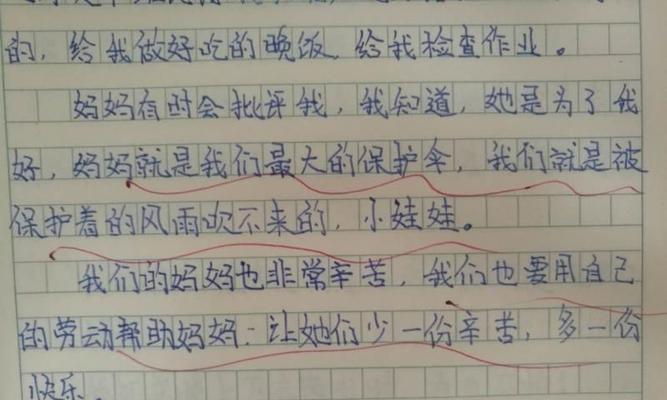 的，给我做好吃的晚饭，给我检查作业。
妈妈有时会批评我，我知道，她是为了我
好，妈妈就是我们最大的保护伞，我们就是被
保护着的风雨吹不来的，小娃娃。
我们的妈妈也非常辛苦，我们也要用自己
的劳动帮助妈妈：让她们少一份辛苦，多一份
快乐。